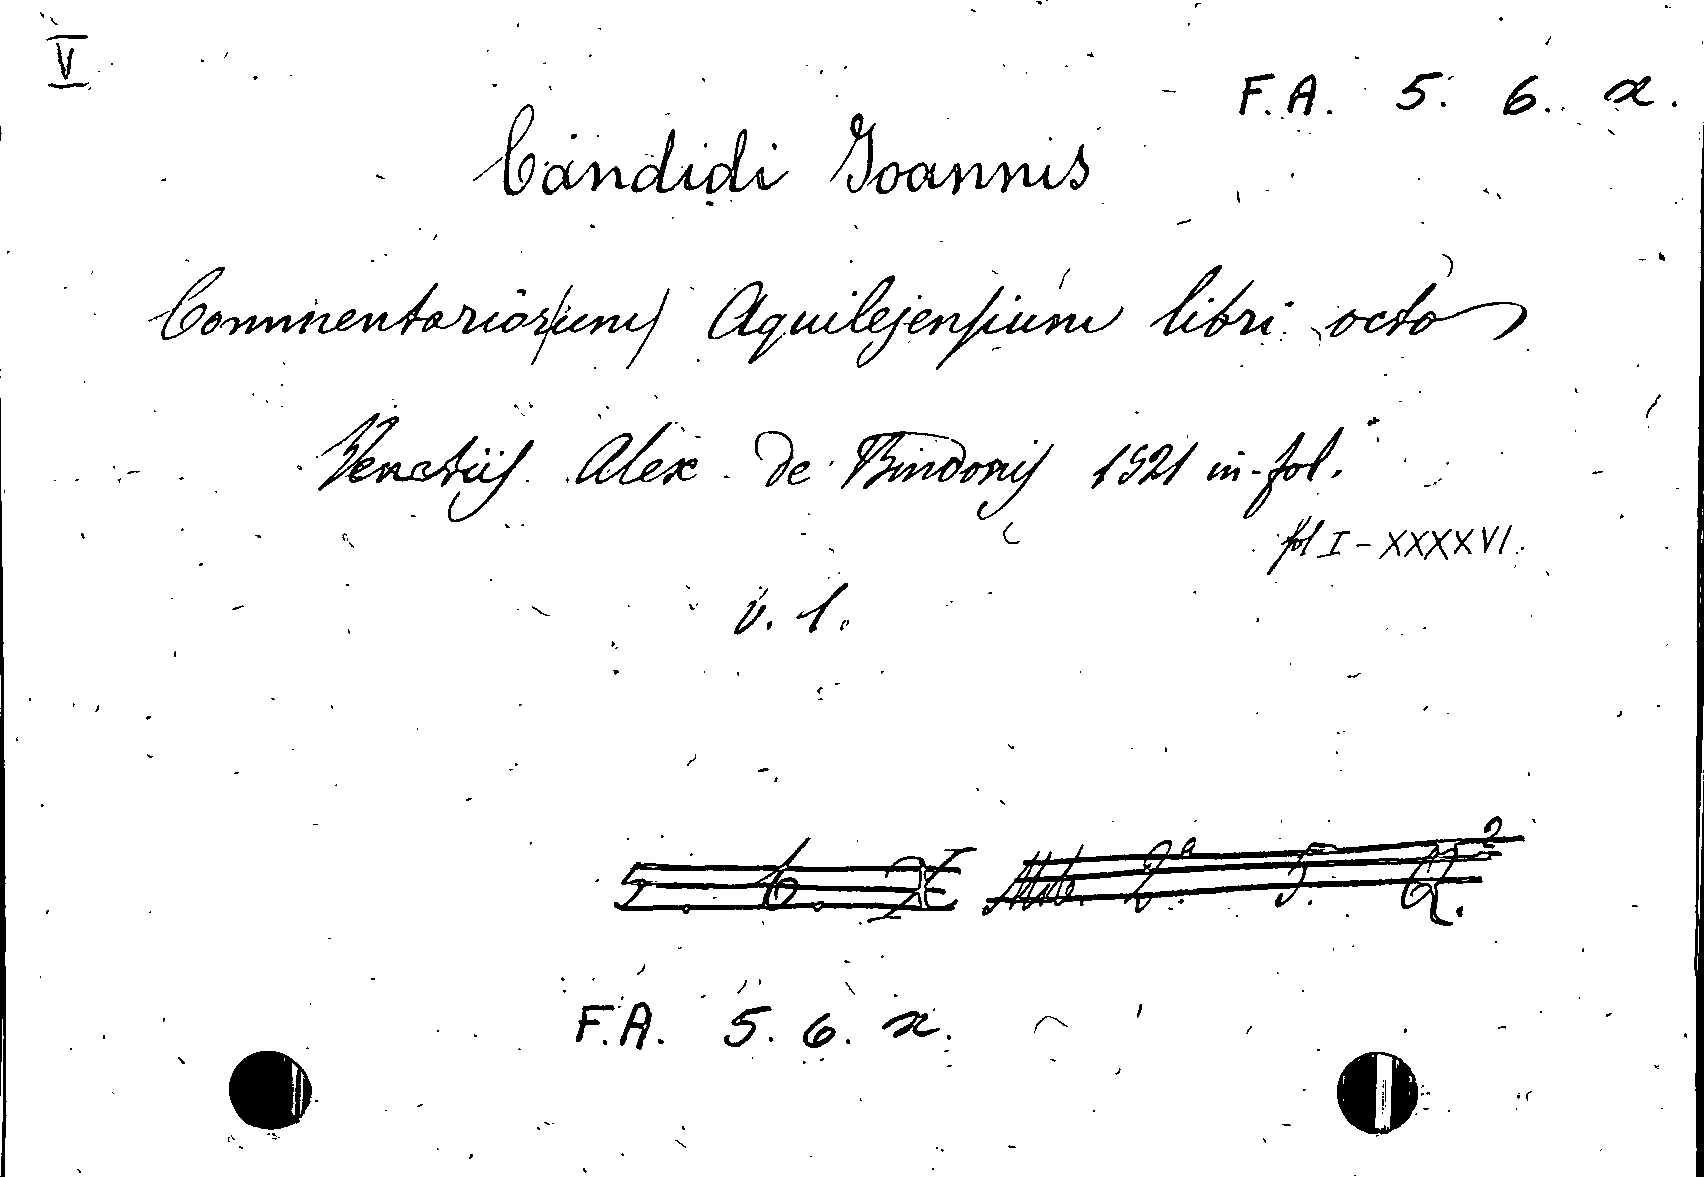 V
F.A. 5. 6. x.
Candidi Joannis
Commentarior(um) Aquilejensium libri octo
Venetiis Alex de Bindonis 1521 in-fol.
fol I - XXXXVI.
v. 1.
5. 6. X 2ª. 5. Q.²
F.A. 5. 6. x.